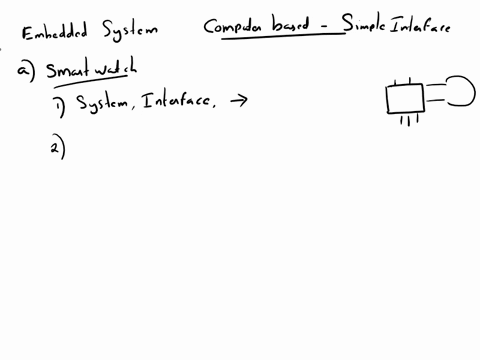 Embedded System Computer based - Simple Interface
a) Smart watch
1) System, Interface, →
2)